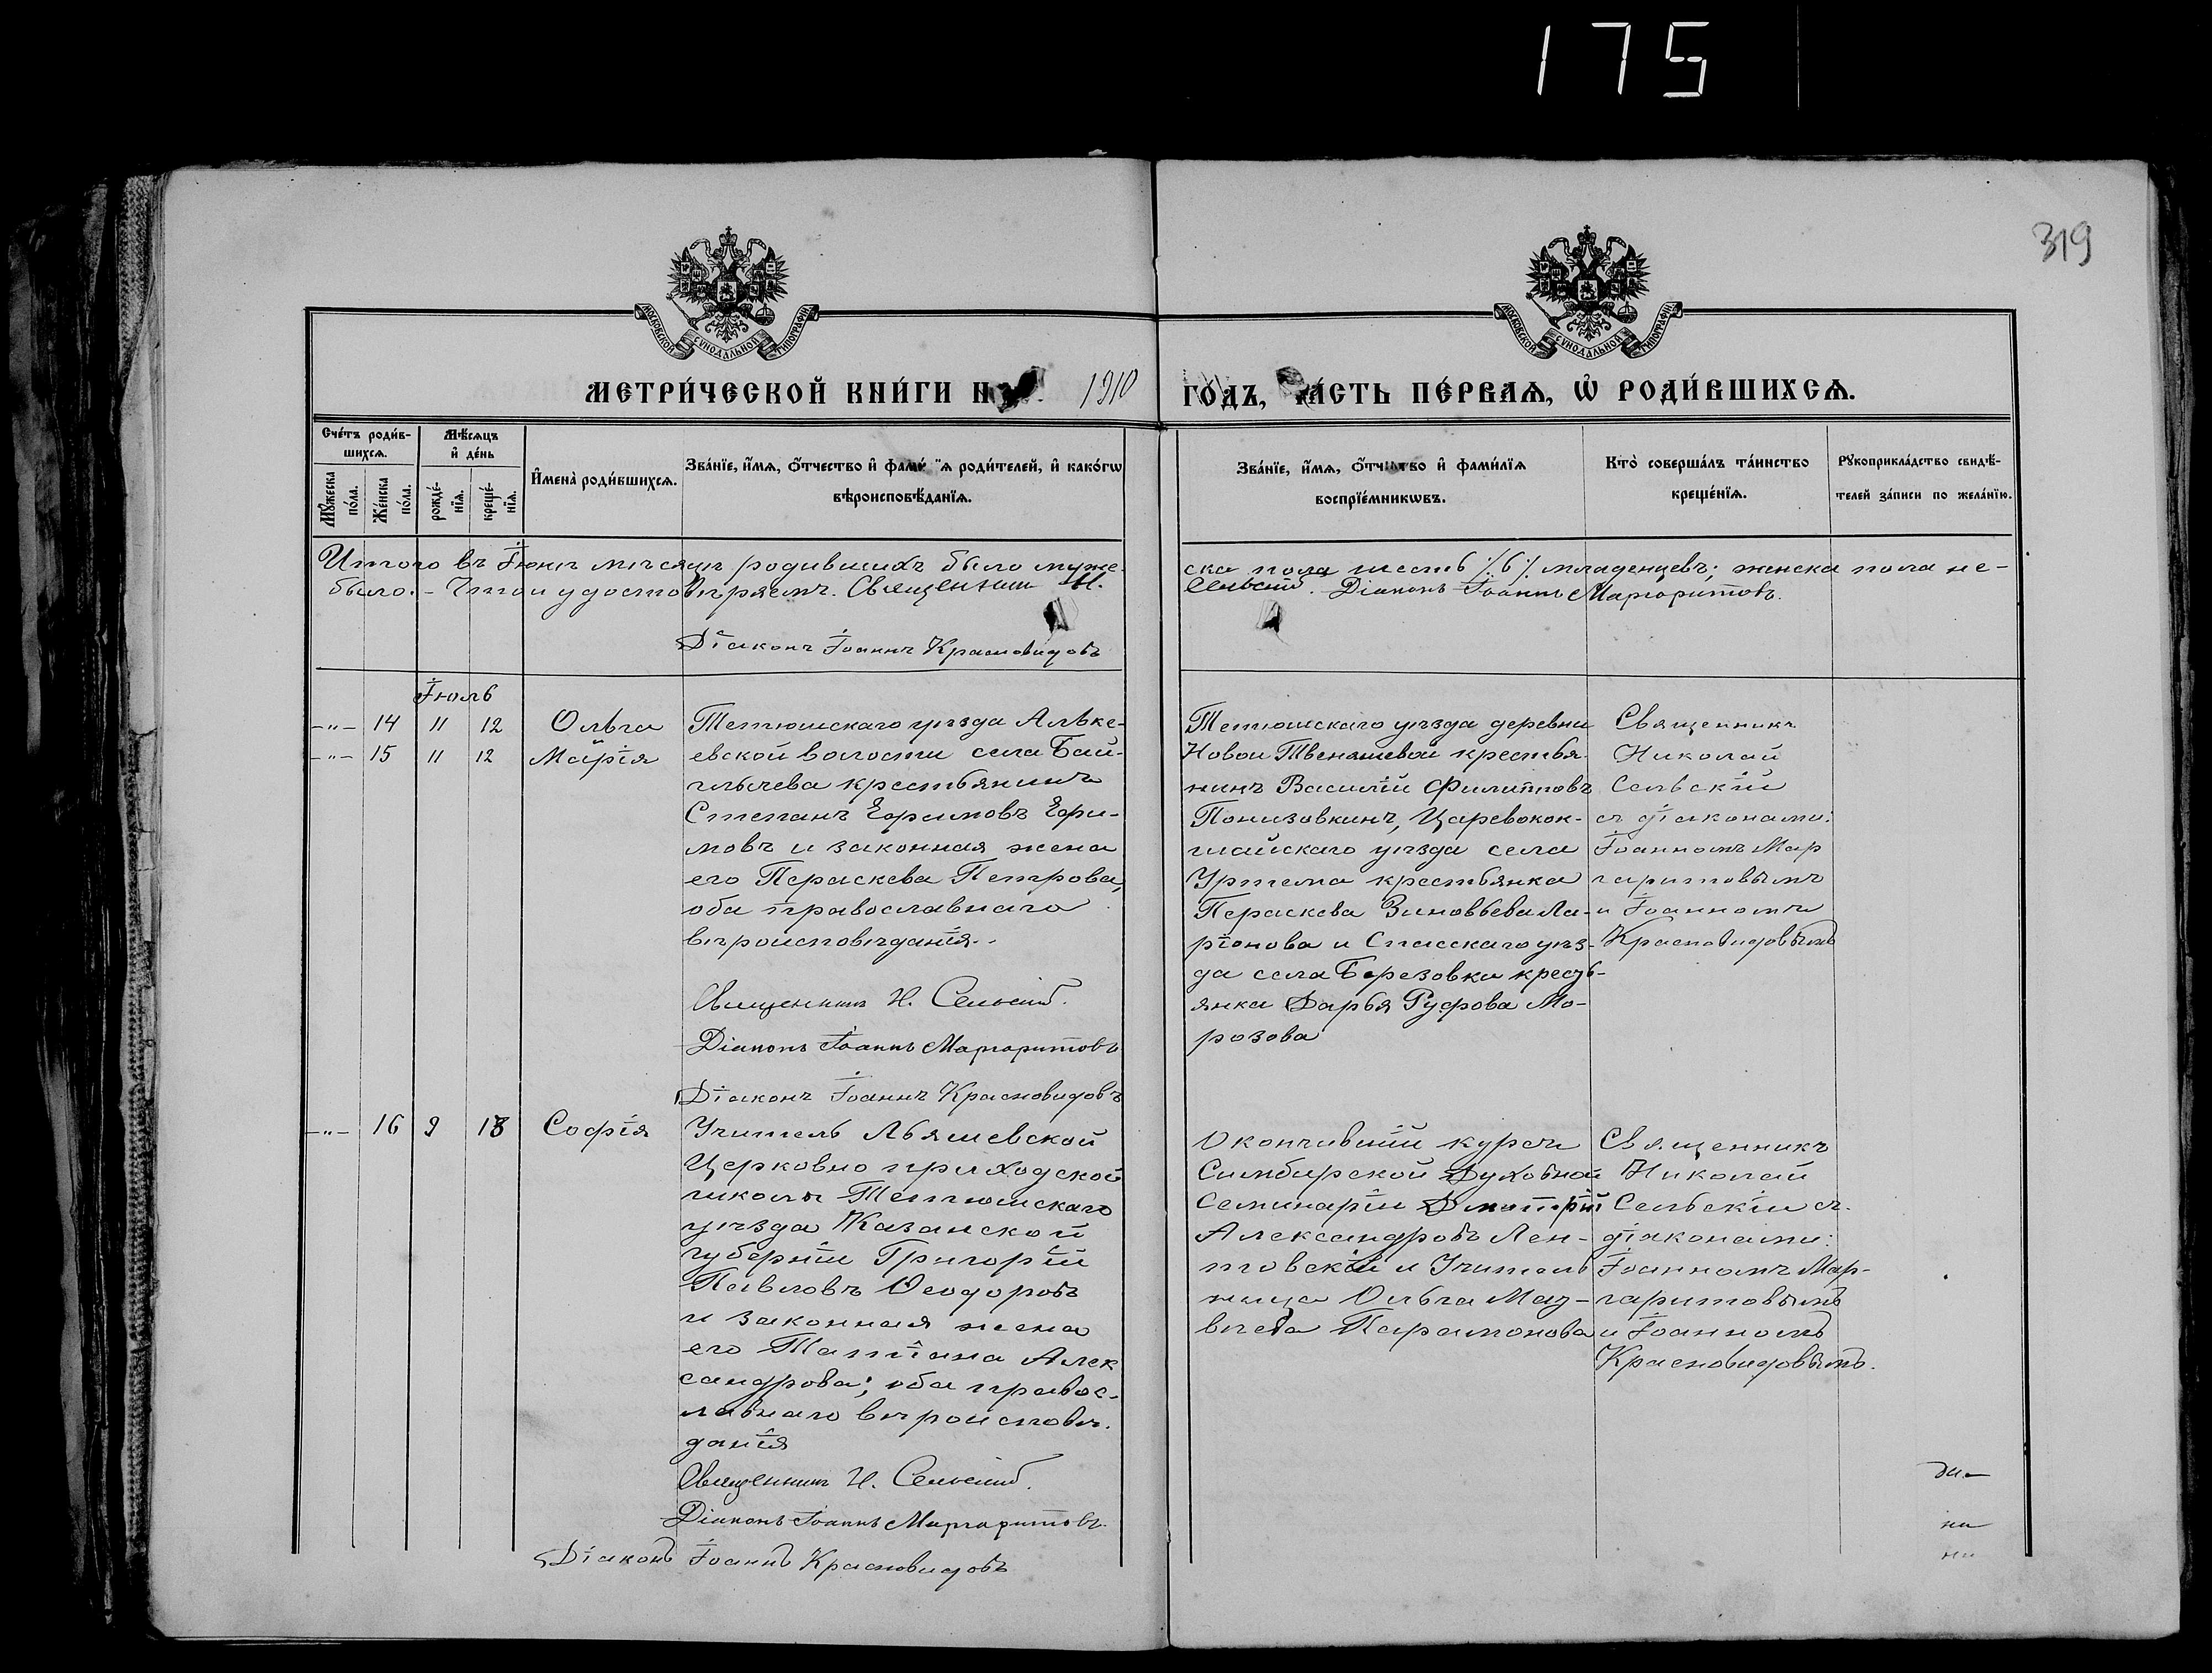 175
319
МОСКОВСКОЙ СѴНОДАЛЬНОЙ ТИПОГРАФІИ
МОСКОВСКОЙ СѴНОДАЛЬНОЙ ТИПОГРАФІИ
МЕТРИ́ЧЕСКОЙ КНИ́ГИ Н 1910
ГО́ДЪ, ЧА́СТЬ ПЕ́РВАѦ, Ѡ РОДИ́ВШИХСѦ.
Сче́тъ роди́в-
шихсѧ.
Мꙋ́жеска по́ла.
Же́нска по́ла.
Мѣ́сѧцъ
и҆ де́нь
рожде́-нїѧ.
креще́-нїѧ.
И҆мена̀ роди́вшихсѧ.
Зва́нїе, и҆́мѧ, ѻ҆́тчество и҆ фами́лїѧ роди́телей, и҆ како́гѡ
вѣроисповѣ́данїѧ.
Зва́нїе, и҆́мѧ, ѻ҆́тчество и҆ фами́лїѧ
воспрїе́мникѡвъ.
Кто̀ соверша́лъ та́инство
креще́нїѧ.
Рꙋкоприкла́дство свидѣ́-
телей за́писи по жела́нїю.
Итого въ Іюнѣ мѣсяцѣ родившихъ было муже-
ска пола шесть /6/ младенцевъ; женска пола не-
было. - Что и удостовѣряемъ. Священникъ Н.
Сельскій. Діаконъ Іоаннъ Маргаритовъ.
Діаконъ Іоаннъ Красновидовъ
Іюль
-"- 14 11 12 Ольга
-"- 15 11 12 Марія
Тетюшскаго уѣзда Альке-
евской волости села Бай-
глычева крестьянинъ
Степанъ Ефимовъ Ефи-
мовъ и законная жена
его Параскева Петрова,
оба православнаго
вѣроисповѣданія.
Священникъ Н. Сельскій.
Діаконъ Іоаннъ Маргаритовъ
Діаконъ Іоаннъ Красновидовъ
Тетюшскаго уѣзда деревни
Новой крестья-
нинъ Василій Филипповъ
Понизовкинъ, Царевокок-
шайскаго уѣзда села
Уртема крестьянка
Параскева Зиновьева Ла-
ріонова и Спасскаго уѣз-
да села Березовки кресть-
янка Дарья Руфова Мо-
розова
Священникъ
Николай
Сельскій
съ діаконами:
Іоанномъ Мар
гаритовымъ
и Іоанномъ
Красновидовымъ
-"- 16 9 18 Софія
Учитель Льяшевской
Церковно приходской
школы Тетюшскаго
уѣзда Казанской
губерніи Григорій
Павловъ Ѳеодоровъ
и законная жена
его Татіана Алек
сандрова; оба правос-
лавнаго вѣроисповѣ-
данія
Священникъ Н. Сельскій.
Діаконъ Іоаннъ Маргаритовъ.
Діаконъ Іоаннъ Красновидовъ
Окончившій курсъ
Симбирской Духовной
Семинаріи Дмитрій
Александровъ Лен-
товскій и Учитель
ница Ольга Мат-
вѣева Парамонова
Священникъ
Николай
Сельскій съ
діаконами:
Іоанномъ Мар-
гаритовымъ
и Іоанномъ
Красновидовымъ.